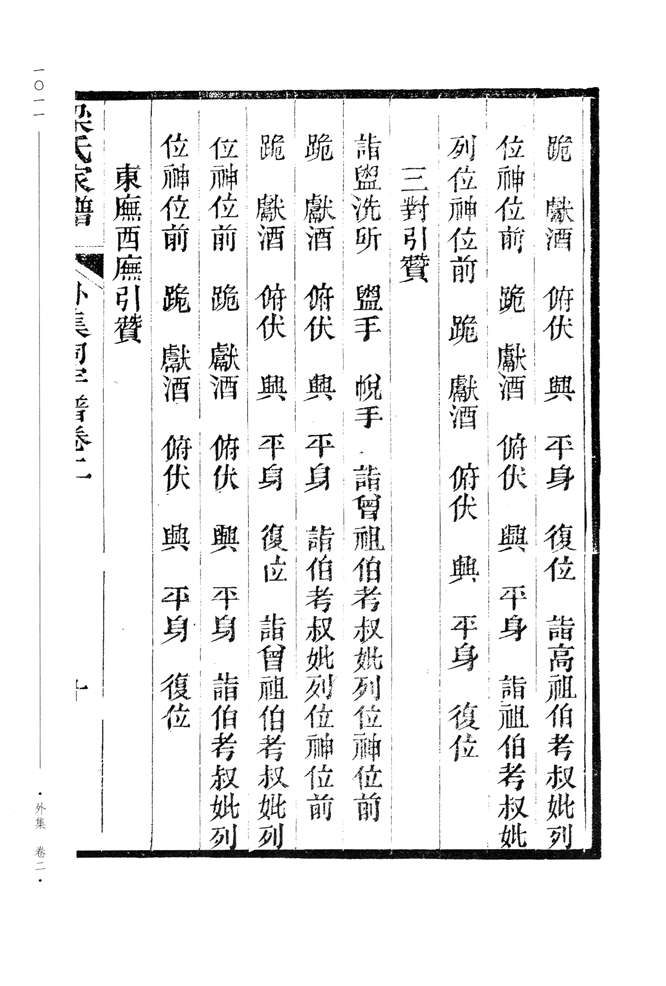 跪　獻酒　俯伏　興　平身　復位　詣高祖伯考叔妣列
位神位前　跪　獻酒　俯伏　興　平身　詣祖伯考叔妣
列位神位前　跪　獻酒　俯伏　興　平身　復位
三對引贊
詣盥洗所　盥手　帨手　詣曾祖伯考叔妣列位神位前
跪　獻酒　俯伏　興　平身　詣伯考叔妣列位神位前
跪　獻酒　俯伏　興　平身　復位　詣曾祖伯考叔妣列
位神位前　跪　獻酒　俯伏　興　平身　詣伯考叔妣列
位神位前　跪　獻酒　俯伏　興　平身　復位
東廡西廡引贊
梁氏家譜　外集祠宇譜卷二　十
一〇一一
·外集 卷二·